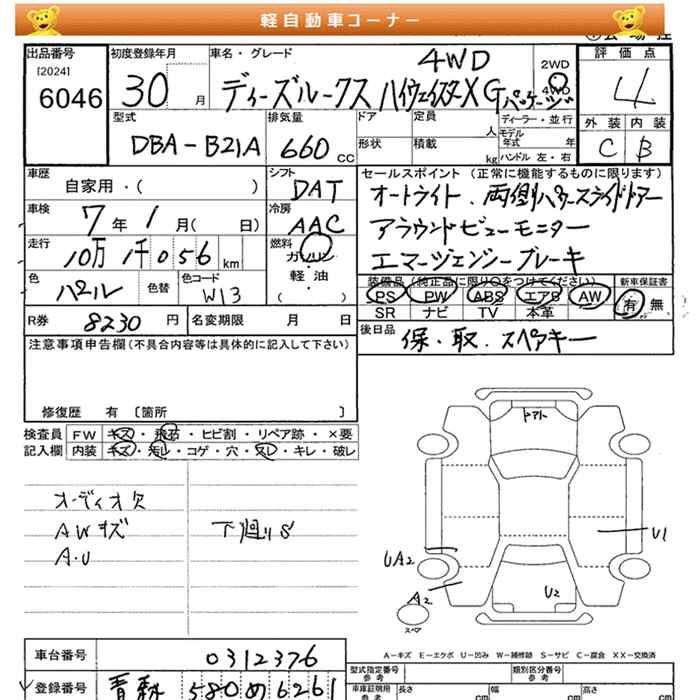 軽自動車コーナー
出品番号
[2024]
6046
初度登録年月
30 月
車名・グレード
4WD
ディーズルークス ハイウェイスターX Gパッケージ
2WD
4WD
評価点
4
外装 内装
C B
型式
DBA-B21A
排気量
660 cc
ドア
定員
人
形状
積載
kg
ディーラー・並行
モデル
年式 年
ハンドル 左・右
車歴
自家用・( )
シフト
DAT
車検
7 年 1 月( 日)
冷房
AAC
走行
10万 1千 056 km
燃料
ガソリン
軽・油
( )
色
パール
色替
色コード
W13
セールスポイント (正常に機能するものに限ります)
オートライト、両側パワースライドドアー
アラウンドビューモニター
エマージェンシーブレーキ
装備品(純正品に限り○をつけてください)
PS PW ABS エアB AW
SR ナビ TV 本革
新車保証書
有 無
R券
8230 円
名変期限 月 日
後日品
保・取・スペアキー
注意事項申告欄(不具合内容等は具体的に記入して下さい)
修復歴 有 〔箇所 〕
検査員
記入欄
FW キズ・飛石・ヒビ割・リペア跡・×要
内装 キズ・汚レ・コゲ・穴・スレ・キレ・破レ
オーディオ欠
AWキズ
A・U
下廻りS
U1
UA2
A2
U2
スペア
A-キズ E-エクボ U-凹み W-補修跡 S-サビ C-腐食 XX-交換済
車台番号
0312376
登録番号
青森 580 め 6261
型式指定番号
参考
類別区分番号
参考
車庫証明用
参考
長さ
cm
幅
cm
高さ
cm